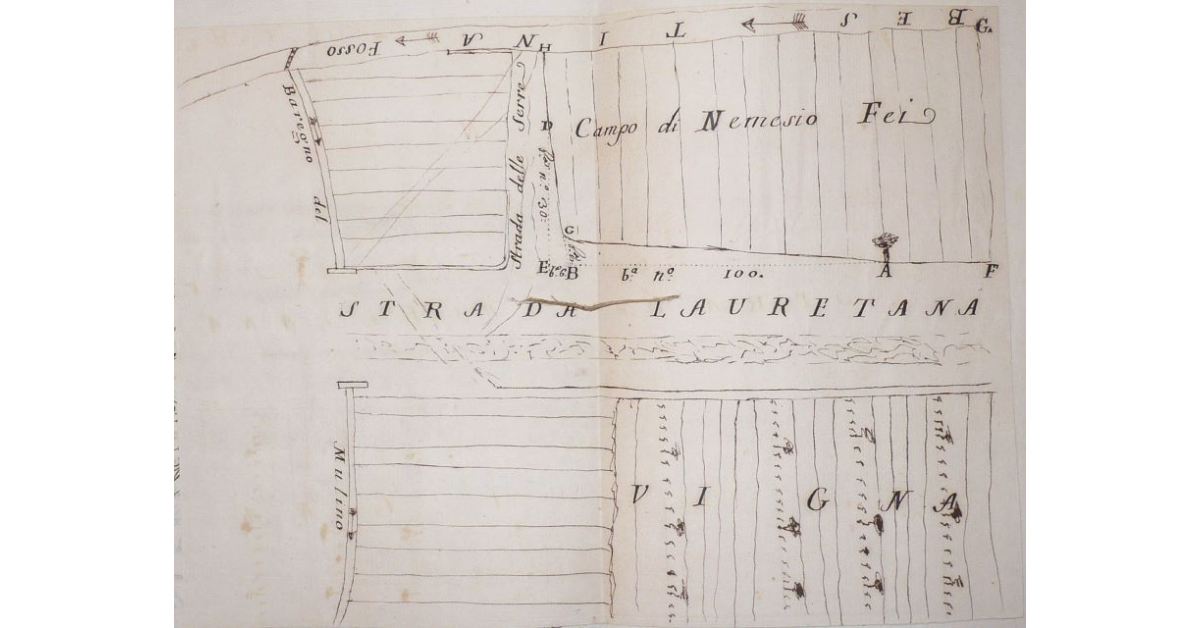 BESTINA Fosso
G
H
Baregno del
Strada delle Serre
D
Campo di Nemesio Fei
n.º 30
C
E
B
b.ª n.º 100.
A
F
STRADA LAURETANA
Mulino
VIGNA